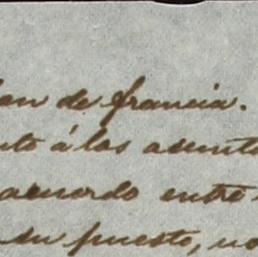 de francia.
á los asunto
acuerdo entre
su puesto, no